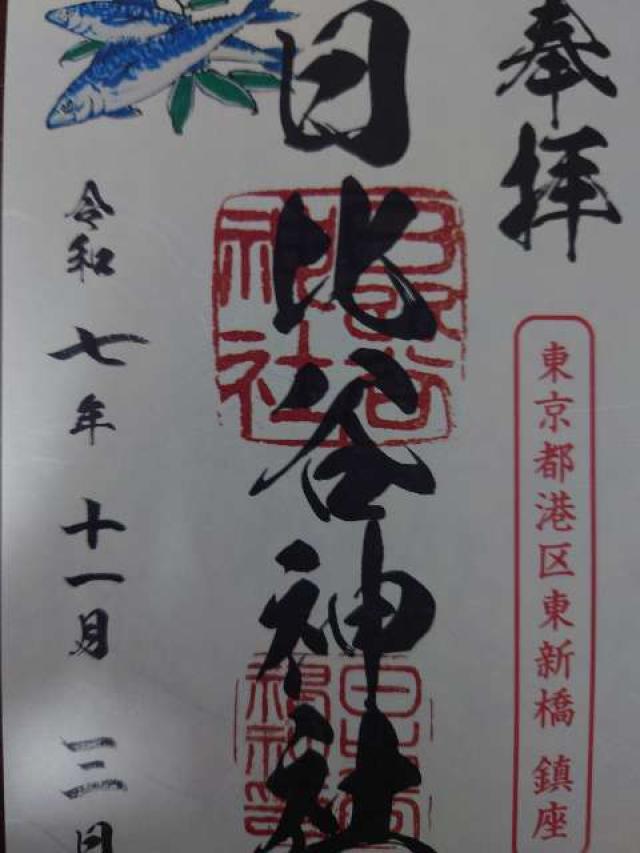 奉拝
東京都港区東新橋 鎮座
日比谷神社
令和七年十一月三日